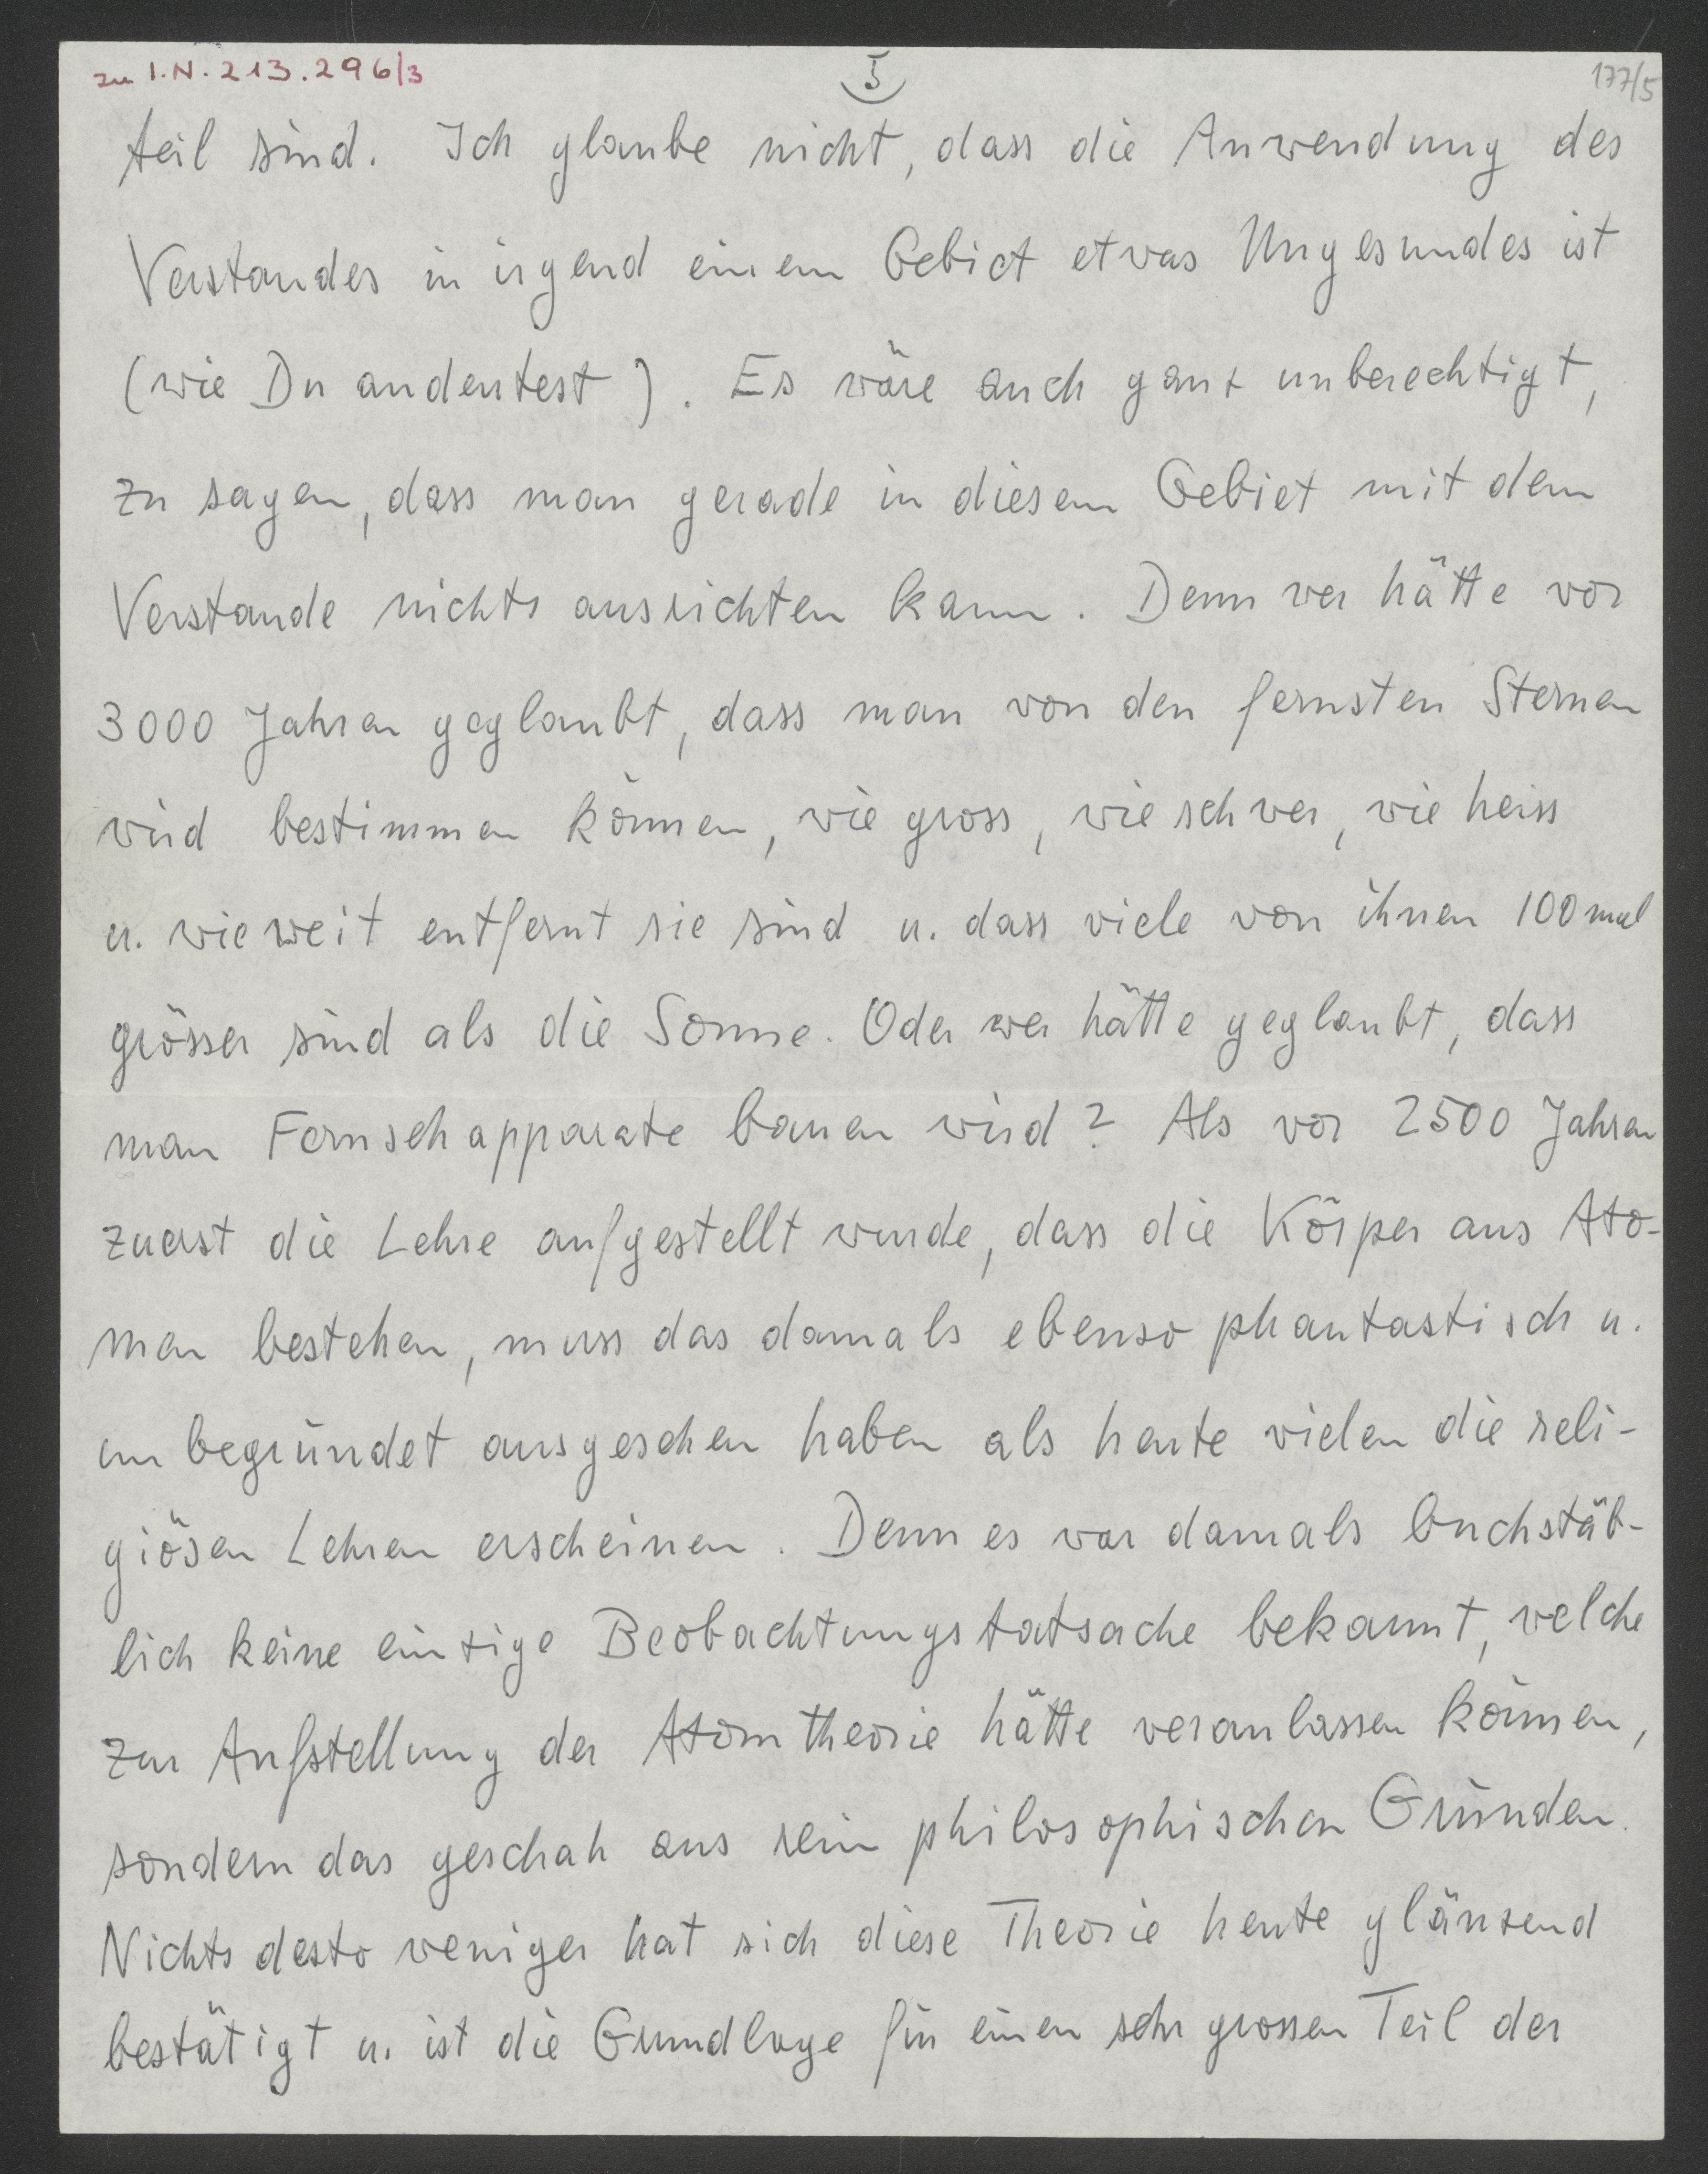 zu I.N. 213.296/3
5
177/5
teil sind. Ich glaube nicht, dass die Anwendung des
Verstandes in irgend einem Gebiet etwas Ungesundes ist
(wie Du andeutest). Es wäre auch ganz unberechtigt,
zu sagen, dass man gerade in diesem Gebiet mit dem
Verstande nichts ausrichten kann. Denn wer hätte vor
3000 Jahren geglaubt, dass man von den fernsten Sternen
wird bestimmen können, wie gross, wie schwer, wie heiss
u. wie weit entfernt sie sind u. dass viele von ihnen 100mal
grösser sind als die Sonne. Oder wer hätte geglaubt, dass
man Fernsehapparate bauen wird? Als vor 2500 Jahren
zuerst die Lehre aufgestellt wurde, dass die Körper aus Ato-
men bestehen, muss das damals ebenso phantastisch u.
unbegründet ausgesehen haben als heute vielen die reli-
giösen Lehren erscheinen. Denn es war damals buchstäb-
lich keine einzige Beobachtungstatsache bekannt, welche
zur Aufstellung der Atomtheorie hätte veranlassen können,
sondern das geschah aus rein philosophischen Gründen.
Nichts desto weniger hat sich diese Theorie heute glänzend
bestätigt u. ist die Grundlage für einen sehr grossen Teil der